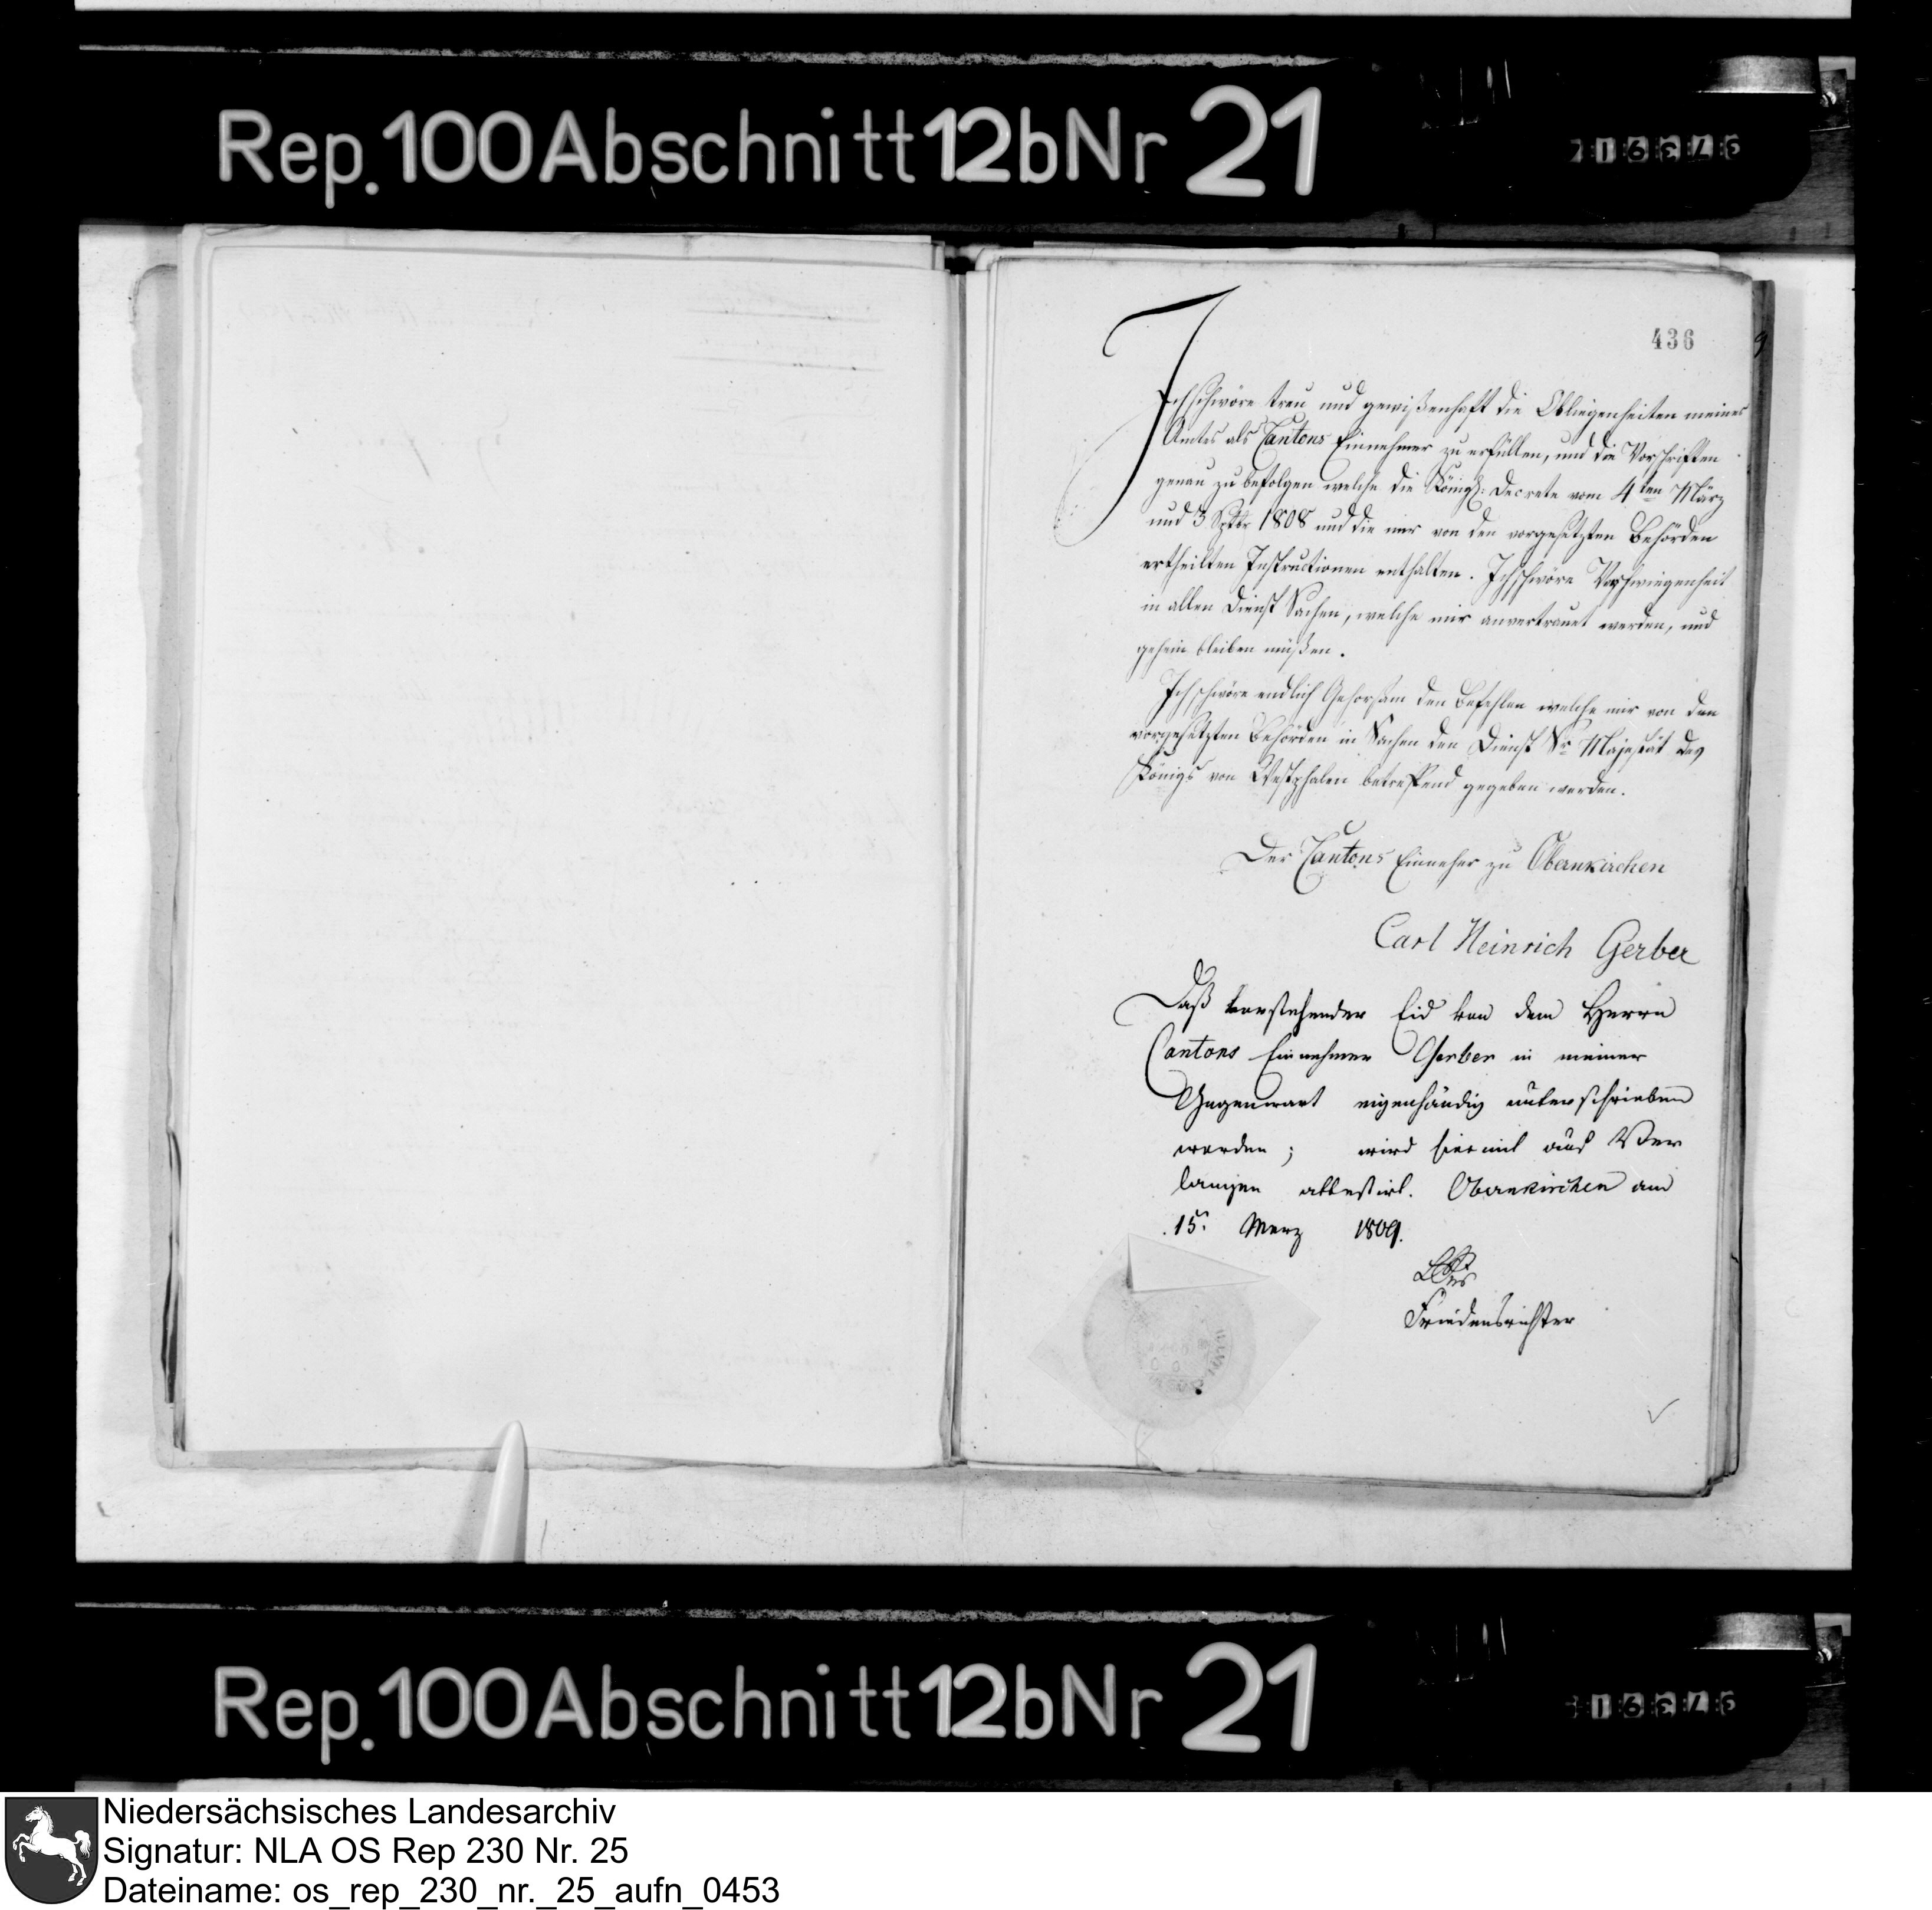 Rep. 100 Abschnitt 12b Nr 21
436
Ich schwöre treu und gewißenhaft die Obliegenheiten meines
Amtes als Cantons Einnehmer zu erfüllen, und die Vorschriften
genau zu befolgen welche die Königl: Decrete vom 4ten März
und 3 Sptbr 1808 und die mir von den vorgesetzten Behörden
ertheilten Instructionen enthalten. Ich schwöre Verschwiegenheit
in allen Dienst Sachen, welche mir anvertrauet werden, und
geheim bleiben müßen.
Ich schwöre endlich Gehorsam den Befehlen welche mir von den
vorgesetzten Behörden in Sachen den Dienst Sr Majestät des
Königs von Westphalen betreffend gegeben werden.
Der Cantons Einneher zu Obernkirchen
Carl Heinrich Gerber
Daß vorstehender Eid von dem Herrn
Cantons Einnehmer Gerber in meiner
Gegenwart eigenhändig unterschrieben
worden; wird hiermit auf Ver
langen attestirt. Obernkirchen am
15. Merz 1809.
Friedensrichter
Rep. 100 Abschnitt 12b Nr 21
Niedersächsisches Landesarchiv
Signatur: NLA OS Rep 230 Nr. 25
Dateiname: os_rep_230_nr._25_aufn_0453